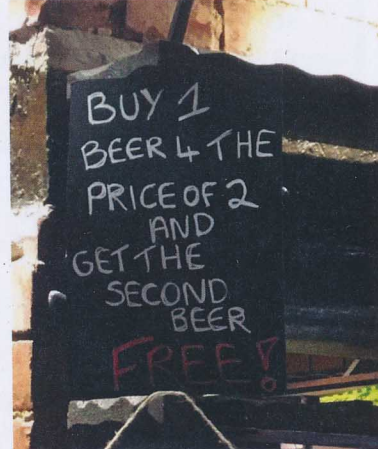 BUY 1
BEER 4 THE
PRICE OF 2
AND
GET THE
SECOND
BEER
FREE!